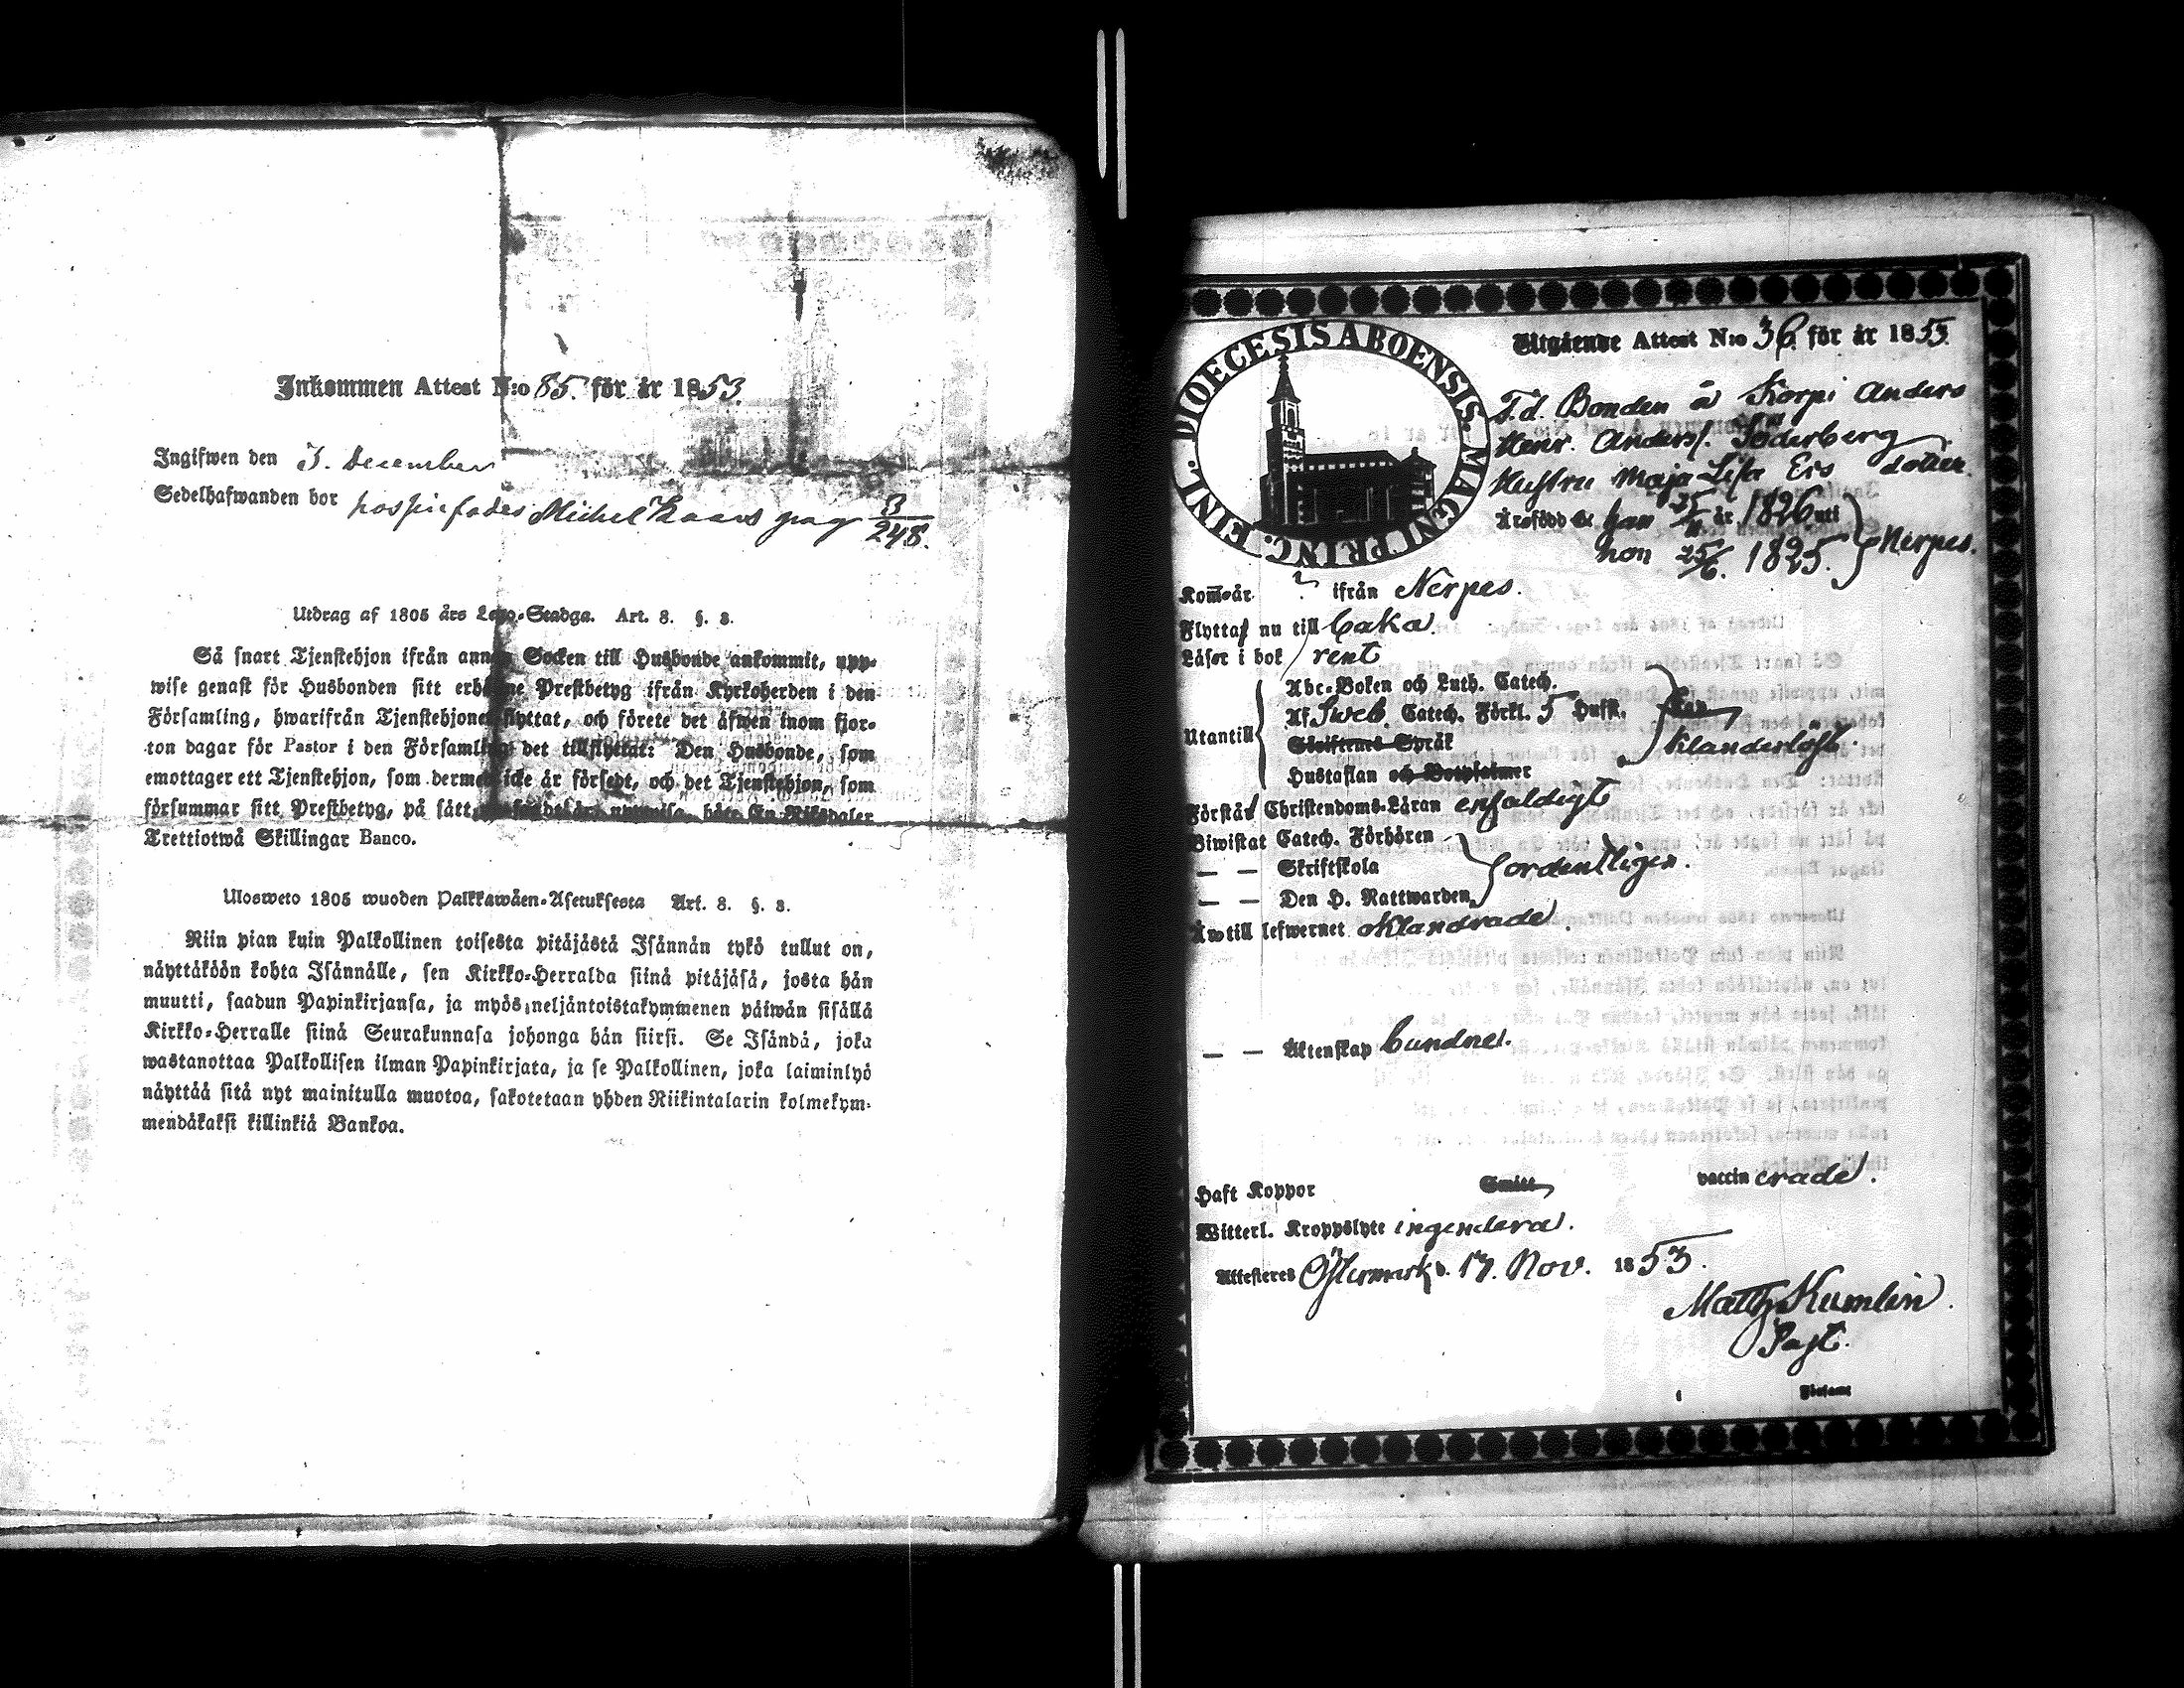 Inkommen Attest N:o 85. för år 1853.
Ingifwen den 3. December
Sedelhafwanden bor hos sin fader Michel Kaars pag 3/248.
Utdrag af 1805 års Lego-Stadga. Art. 8. §. 3.
Så snart Tjenstehjon ifrån annan Socken till Husbonde ankommit, upp-
wise genast för Husbonden sitt erhållne Prestbetyg ifrån Kyrkoherden i den
Församling, hwarifrån Tjenstehjonet flyttat, och förete det äfwen inom fjor-
ton dagar för Pastor i den Församling det tillflyttat: Den Husbonde, som
emottager ett Tjenstehjon, som dermed icke är försedt, och det Tjenstehjon, som
försummar sitt Prestbetyg, på sätt, uppwisa, böte En Riksdaler
Trettiotwå Skillingar Banco.
Ulosweto 1805 wuoden Palkkawäen-Asetuksesta Art. 8. §. 3.
Niin pian kuin Palkollinen toisesta pitäjästä Isännän tykö tullut on,
näyttäköön kohta Isännälle, sen Kirkko-Herralda siinä pitäjäsä, josta hän
muutti, saadun Papinkirjansa, ja myös neljäntoistakymmenen päiwän sisällä
Kirkko-Herralle siinä Seurakunnasa johonga hän siirsi. Se Isändä, joka
wastanottaa Palkollisen ilman Papinkirjata, ja se Palkollinen, joka laiminlyö
näyttää sitä nyt mainitulla muotoa, sakotetaan yhden Riikintalarin kolmekym-
mendäkaksi killinkiä Bankoa.
DIOECESIS ABOENSIS. MAGNI PRINC. FINL.
Utgående Attest N:o 36. för år 1853.
F.d. Bonden å Korpi Anders
Henr. Anders. Söderberg
Hustru Maja Lisa Ers dotter
Årsfödd är han 25/11 år 1826 uti
hon 25/6. 1825. Nerpes.
Kom̄ år ? ifrån Nerpes.
Flytta nu till baka
Läser i bok rent
Abc-Boken och Luth. Catech.
Af Sweb. Catech. Förkl. 5 Hufst.
Utantill
Skriftenes Språk
klanderlöst.
Hustaflan och Botpsalmer
Förstår Christendoms-Läran enfaldigt
Biwistat Catech. Förhören
— — Skriftskola
ordentligen.
— — Den H. Nattwarden
Äro till lefwernet oklandrade.
— — Äktenskap bundne.
Haft Koppor Smitt vaccin erade.
Witterl. Kroppslyte ingendera.
Attesteres Östermark d. 17. Nov. 1853.
Matth. Kumlin.
Past.